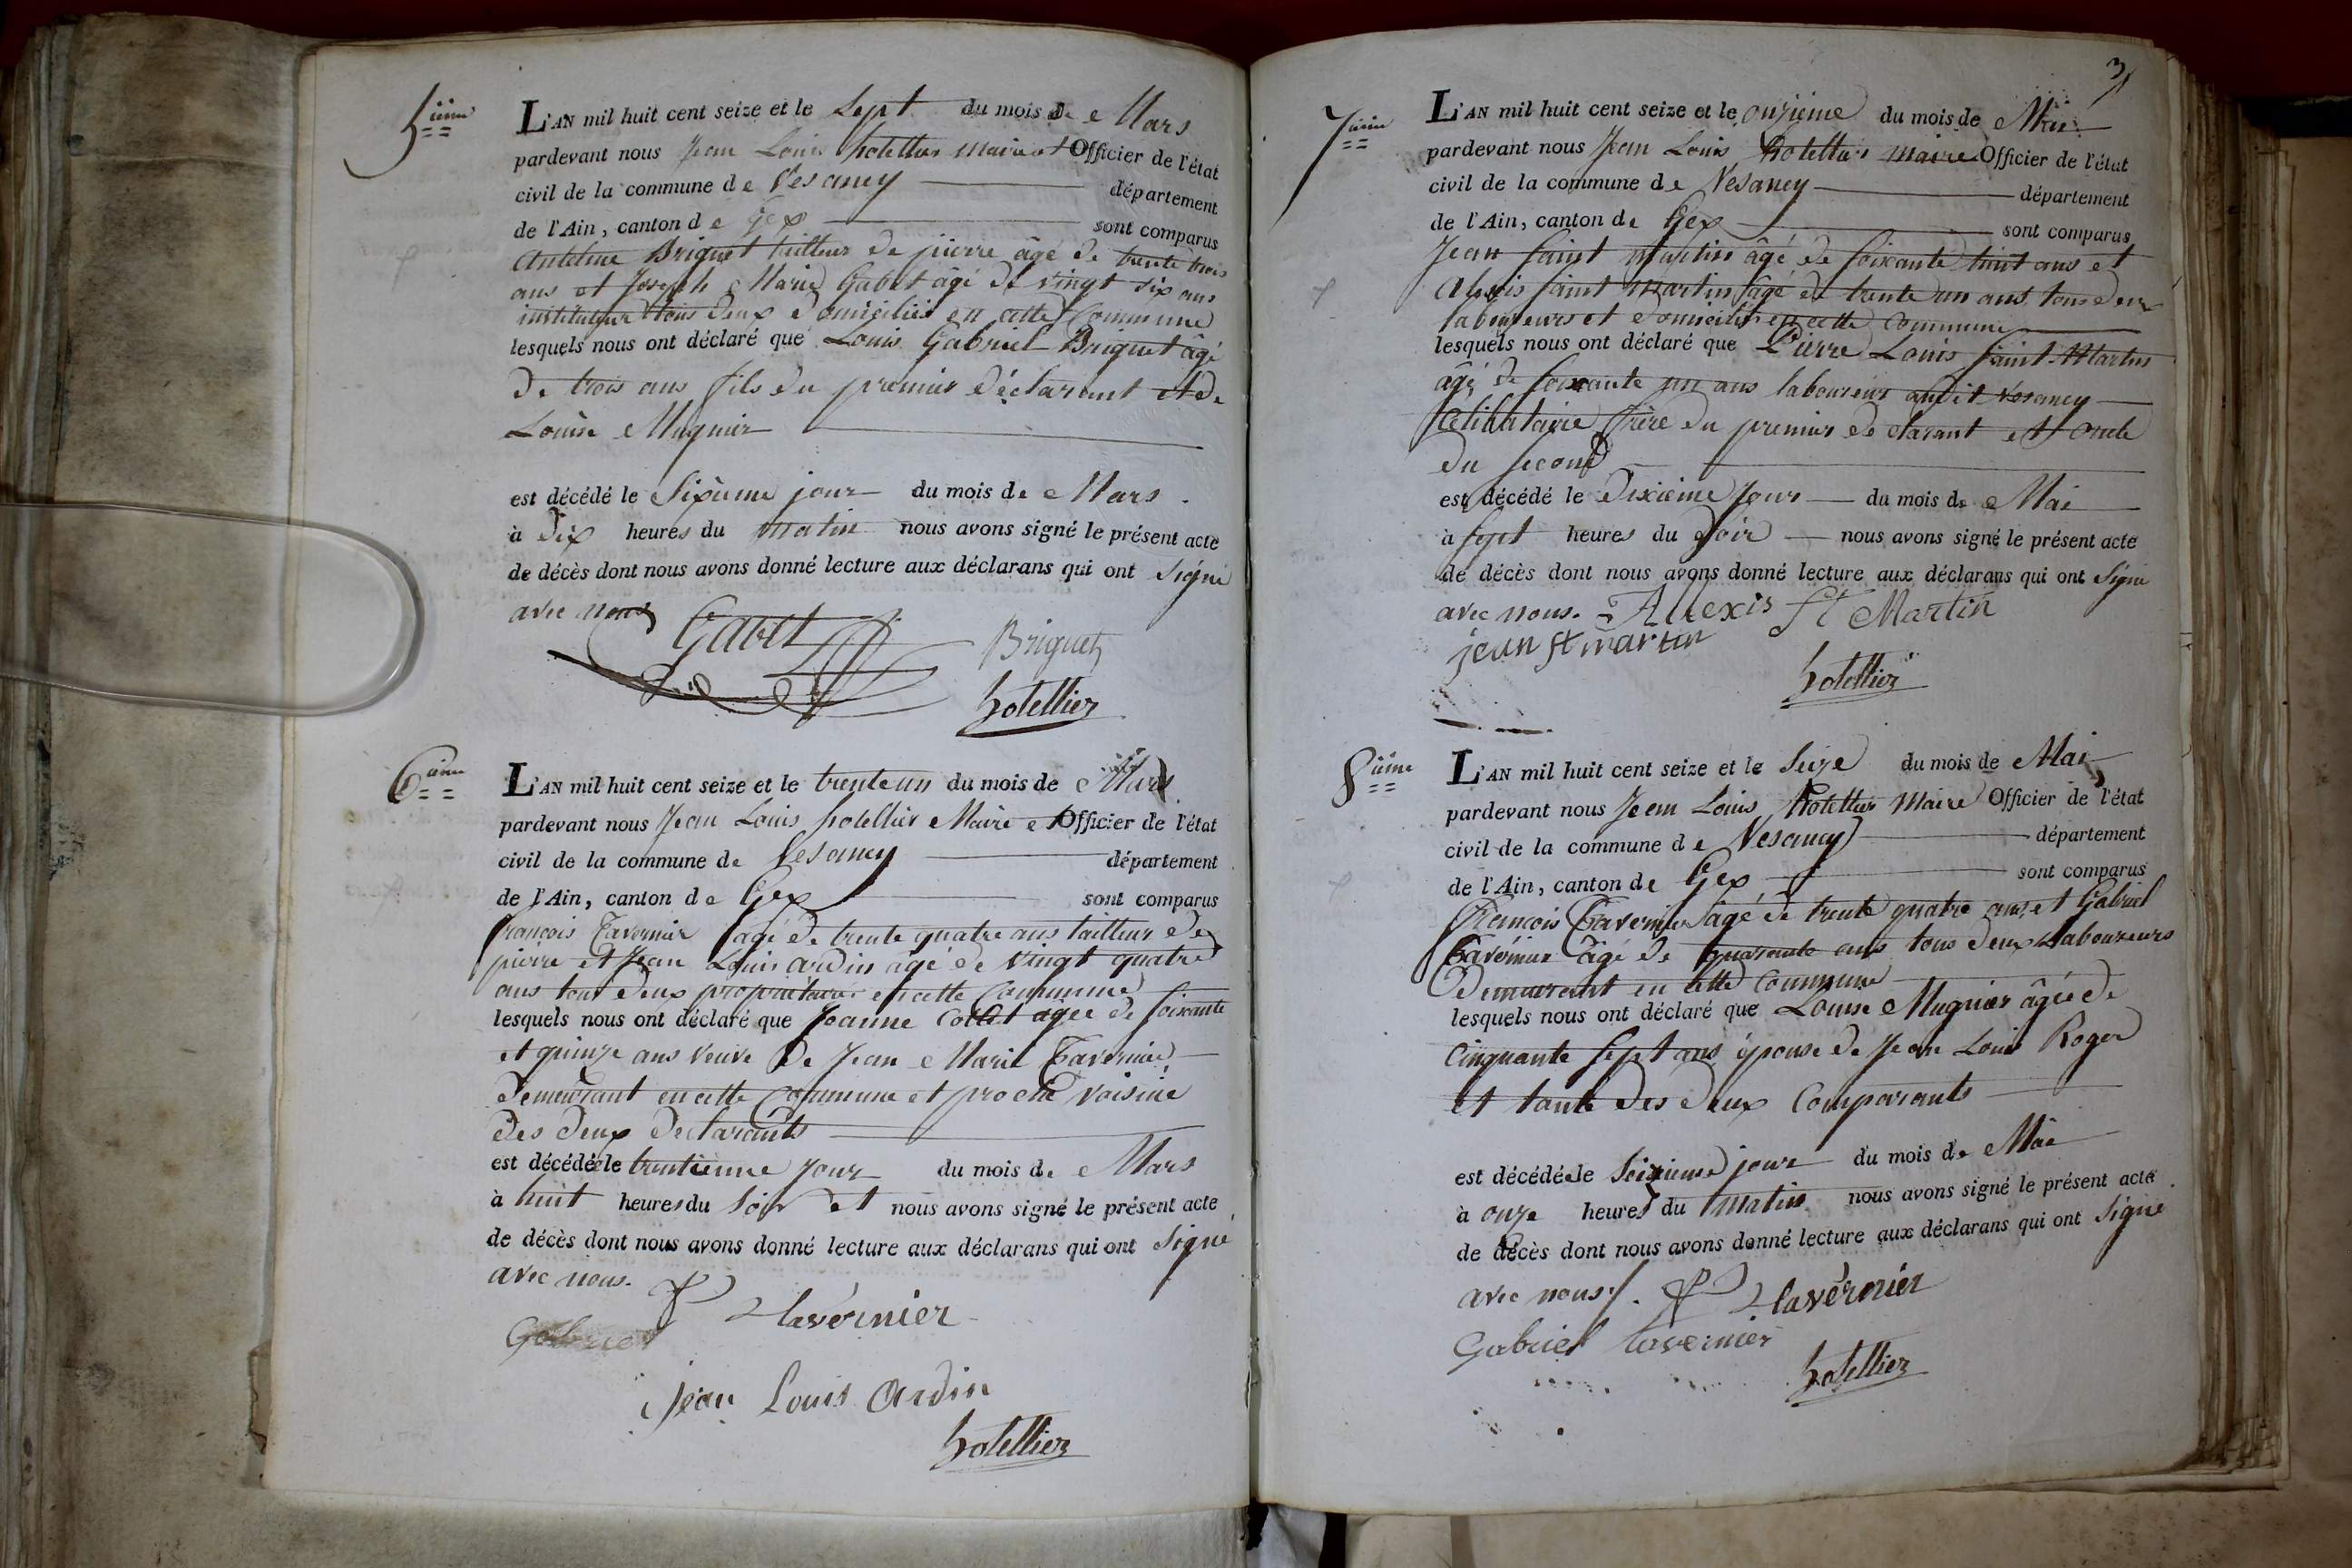 5ième
L'AN mil huit cent seize et le Sept du mois de Mars
pardevant nous Jean Louis hotellier maire et Officier de l'état
civil de la commune de Vesancy département
de l'Ain, canton de Gex sont comparus
Antelme Briguet tailleur de pierre âgé de trente trois
ans et Joseph Marie Gabet âgé de vingt six ans
instituteur tous deux domiciliés en cette Commune
lesquels nous ont déclaré que Louis Gabriel Briguet âgé
de trois ans fils du premier déclarant et de
Louise Mugnier
est décédé le Sixième jour du mois de Mars
à Dix heures du matin nous avons signé le présent acte
de décès dont nous avons donné lecture aux déclarans qui ont Signé
avec nous
Gabet
Briguet
hotellier
6ième
L'AN mil huit cent seize et le trente un du mois de Mars
pardevant nous Jean Louis hotellier Maire et Officier de l'état
civil de la commune de Vesancy département
de l'Ain, canton de Gex sont comparus
françois Tavernier agé de trente quatre ans tailleur de
pierre et Jean Louis ardin âgé de vingt quatre
ans tout deux proprietaires en cette Commune
lesquels nous ont déclaré que Jeanne Collet agée de soixante
et quinze ans veuve de Jean Marie Tavernier
demeurant en cette Commune et proche voisine
des deux declarants
est décédée le trentienne Jour du mois de Mars
à huit heures du Soir et nous avons signé le présent acte
de décès dont nous avons donné lecture aux déclarans qui ont Signé
avec nous.
f tavérnier
Gabriel
Jean Louis Ardin
hotellier
3
7ième
L'AN mil huit cent seize et le onzième du mois de Mai
pardevant nous Jean Louis hotellier maire Officier de l'état
civil de la commune de Vesancy département
de l'Ain, canton de Gex sont comparus
Jean Saint Martin âgé de soixante huit ans et
Alexis saint Martin âgé de trente un ans tous deux
laboureurs et domiciliés en cette Commune
lesquels nous ont déclaré que Pierre Louis Saint-Martin
âgé de soixante un ans laboureur audit Vesancy
célibataire frère du premier déclarant et oncle
du second
est décédé le dixième Jour du mois de Mai
à sept heures du Soir nous avons signé le présent acte
de décès dont nous avons donné lecture aux déclarans qui ont Signé
avec nous. Allexis St Martin
jean st martin
hotellier
8ième
L'AN mil huit cent seize et le Seize du mois de Mai
pardevant nous Jean Louis hotellier Maire Officier de l'état
civil de la commune de Vesancy département
de l'Ain, canton de Gex sont comparus
François Tavernier âgé de trente quatre ans et Gabriel
Tavérnier âgé de quarante ans tous deux Laboureurs
Demeurant en cette Commune
lesquels nous ont déclaré que Louise Mugnier âgée de
Cinquante sept ans épouse de Jean Louis Roger
et tante des deux Comparants
est décédée le Seizieme jour du mois de Mai
à onze heures du matin nous avons signé le présent acte
de décès dont nous avons donné lecture aux déclarans qui ont Signé
avec nous. f tavérnier
Gabriel tavernier
hotellier